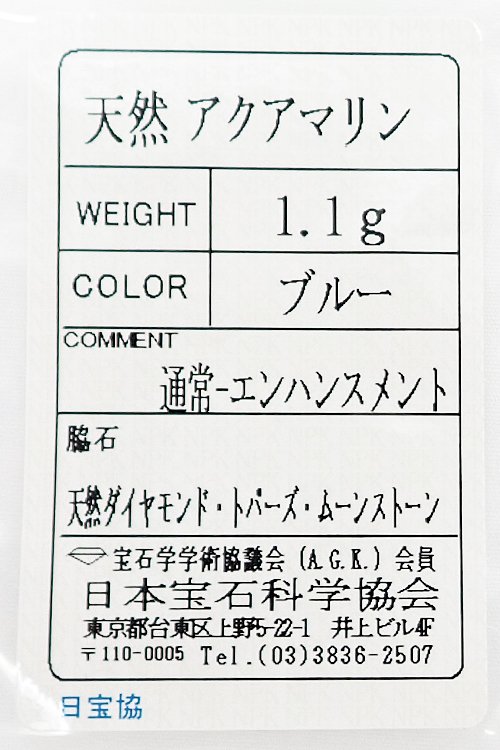 天然 アクアマリン
WEIGHT 1.1g
COLOR ブルー
COMMENT
通常-エンハンスメント
脇石
天然ダイヤモンド・トパーズ・ムーンストーン
宝石学学術協議会(A.G.K.)会員
日本宝石科学協会
東京都台東区上野5-22-1 井上ビル4F
〒110-0005 Tel.(03)3836-2507
日宝協